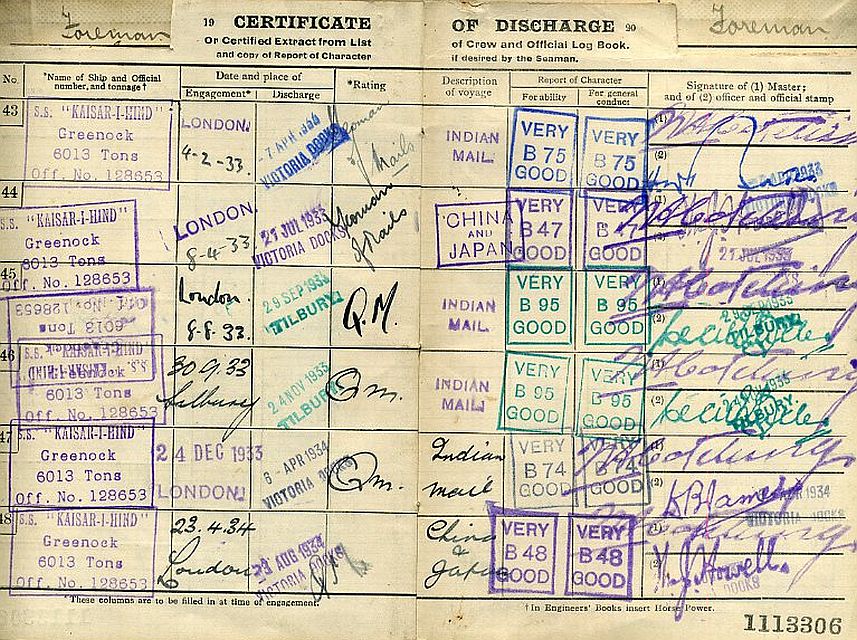 19 CERTIFICATE OF DISCHARGE 20
Foreman
Foreman
Or Certified Extract from List of Crew and Official Log Book.
and copy of Report of Character if desired by the Seaman.
No.
*Name of Ship and Official number, and tonnage†
Date and place of
Engagement*
Discharge
*Rating
Description of voyage
Report of Character
For ability
For general conduct
Signature of (1) Master; and of (2) officer and official stamp
43
S.S. "KAISAR-I-HIND"
Greenock
6013 Tons
Off. No. 128653
LONDON.
4-2-33.
-7 APR 1933
VICTORIA DOCKS
Yeoman
of Mails
INDIAN
MAIL.
VERY
B 75
GOOD
VERY
B 75
GOOD
(1)
(2)
44
S.S. "KAISAR-I-HIND"
Greenock
6013 Tons
Off. No. 128653
LONDON
8-4-33
21 JUL 1933
VICTORIA DOCKS
Yeoman
of Mails
CHINA
AND
JAPAN
VERY
B 47
GOOD
VERY
B 47
GOOD
(1)
21 JUL 1933
45
Off. No. 128653
6013 Tons
Greenock
S.S. "KAISAR-I-HIND"
London.
8.8.33.
29 SEP 1933
TILBURY
Q.M.
INDIAN
MAIL.
VERY
B 95
GOOD
VERY
B 95
GOOD
(2)
29 SEP 1933
TILBURY
46
S.S. "KAISAR-I-HIND"
Greenock
6013 Tons
Off. No. 128653
30.9.33
Tilbury
24 NOV 1933
TILBURY
Qm.
INDIAN
MAIL.
VERY
B 95
GOOD
VERY
B 95
GOOD
(1)
(2)
24 NOV 1933
TILBURY
47
S.S. "KAISAR-I-HIND"
Greenock
6013 Tons
Off. No. 128653
24 DEC 1933
LONDON.
6-APR 1934
VICTORIA DOCKS
Qm.
Indian
mail
VERY
B 74
GOOD
VERY
B 74
GOOD
(2)
VICTORIA DOCKS
48
S.S. "KAISAR-I-HIND"
Greenock
6013 Tons
Off. No. 128653
23.4.34
London
AUG 1934
VICTORIA DOCKS
China
&
Japan
VERY
B 48
GOOD
VERY
B 48
GOOD
(1)
(2)
Howell
DOCKS
*These columns are to be filled in at time of engagement.
†In Engineers' Books insert Horse Power.
1113306